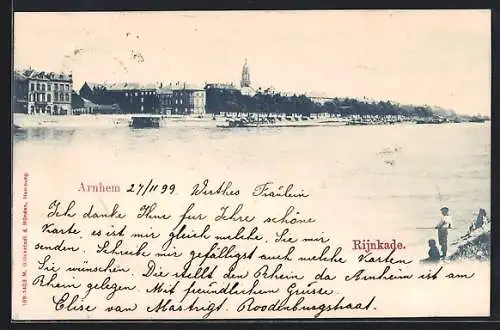 Arnhem 27/11 99 Werthes Fräulein
Ich danke Ihne fur Ihre schöne
Karte, es ist mir gleich welche, Sie mir
senden. Schreibe mir gefälligst auch welche Karten
Sie wünschen. Die stellt den Rhein da Arnheim ist am
Rhein gelegen. Mit freundlichem Grusse.
Elise van Mastrigt. Roodenburgstraat.
Rijnkade.
M. Glückstadt & Münden, Hamburg.